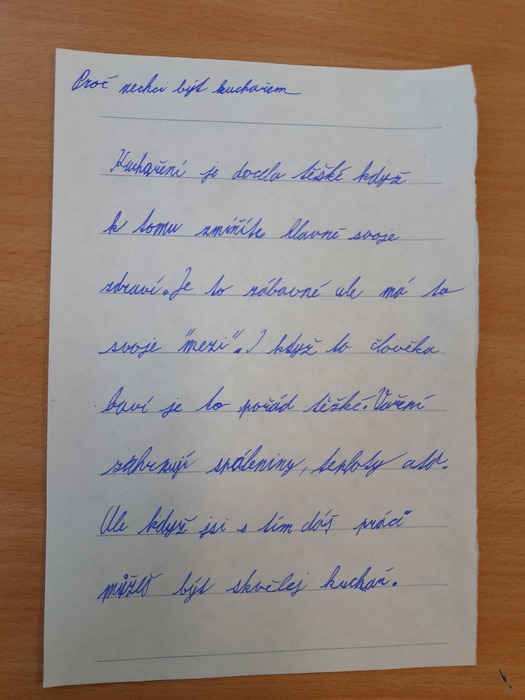 Proč nechci být kuchařem
Kuchaření je docela těžké když
k tomu zmíníte hlavně svoje
zdraví. Je to zábavné ale má to
svoje "mezi". I když to člověka
baví je to pořád těžké. Vaření
zahrnují spáleniny, teploty atd.
Ale když jsi s tím dáš práci
můžeš být skvělej kuchař.